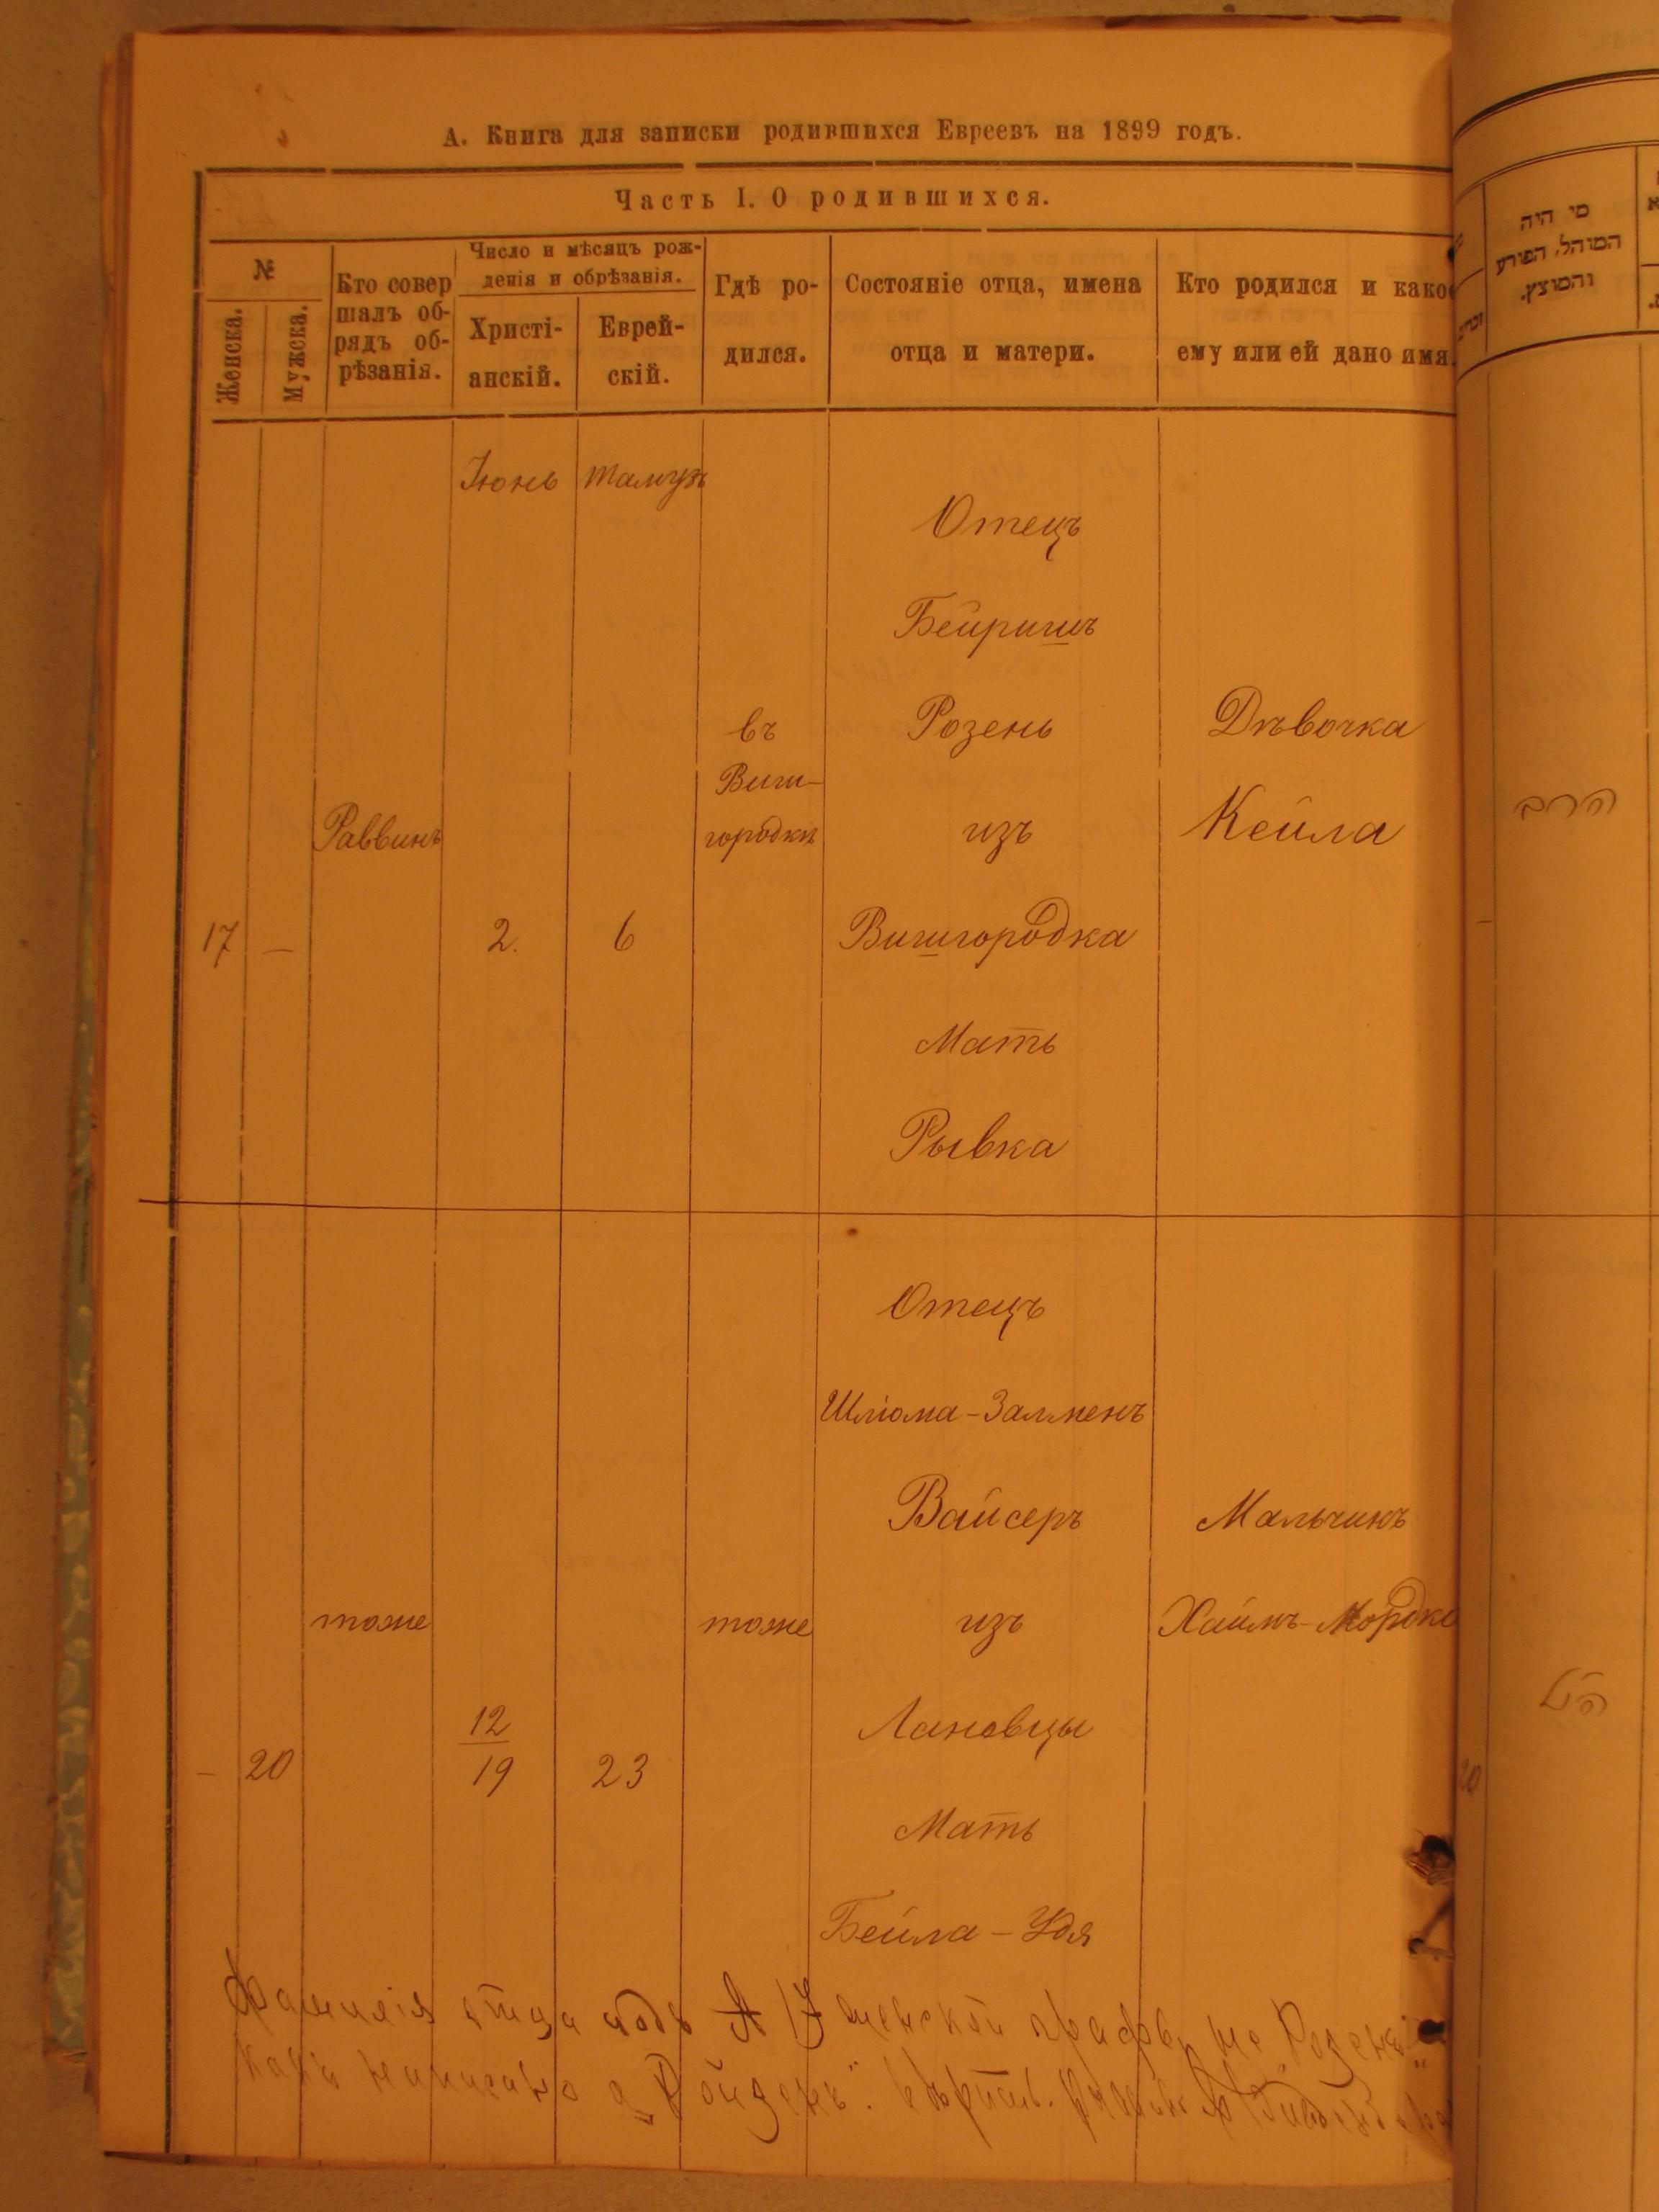 А. Книга для записки родившихся Евреевъ на 1899 годъ.
Часть I. О родившихся.
№
Женска.
Мужска.
Кто совер
шалъ об-
рядъ об-
рѣзанія.
Число и мѣсяцъ рож-
денія и обрѣзанія.
Христі-
анскій.
Еврей-
скій.
Гдѣ ро-
дился.
Состояніе отца, имена
отца и матери.
Кто родился и како
ему или ей дано имя.
מי היה
המוהל, הפורע
והמוצץ.
Іюнь
тамузъ
17
—
Раввинъ
2.
6
въ
Виш-
городкѣ
Отецъ
Бейришъ
Розень
изъ
Вишгородка
Мать
Рывка
Дѣвочка
Кейла
הרב
—
20
тоже
12
19
23
тоже
Отецъ
Шліома-Залменъ
Вайсеръ
изъ
Лановцы
Мать
Бейла-Удя
Мальчикъ
Хаимъ-Мордко
הנ"ל
20
Фамилія отца подъ № 17 женской графы не Розень"
какъ написано а „Ройзенъ".